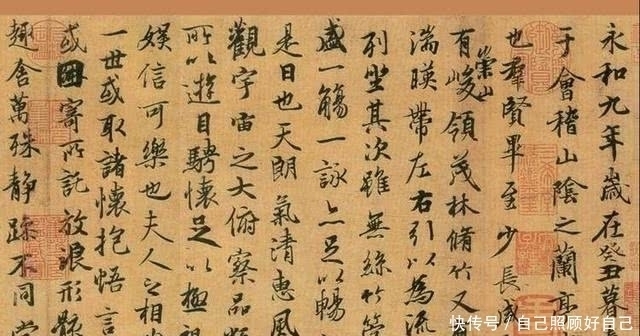 永和九年歲在癸丑暮
于會稽山陰之蘭亭
也羣賢畢至少長咸
有崇山峻領茂林脩竹又
湍暎帶左右引以為流
列坐其次雖無絲竹管
盛一觴一詠亦足以暢
是日也天朗氣清惠風
觀宇宙之大俯察品類
所以遊目騁懷足以極視
娛信可樂也夫人之相
一世或取諸懷抱悟言
或因寄所託放浪形骸
趣舍萬殊靜躁不同當
快传号/自己照顾好自己